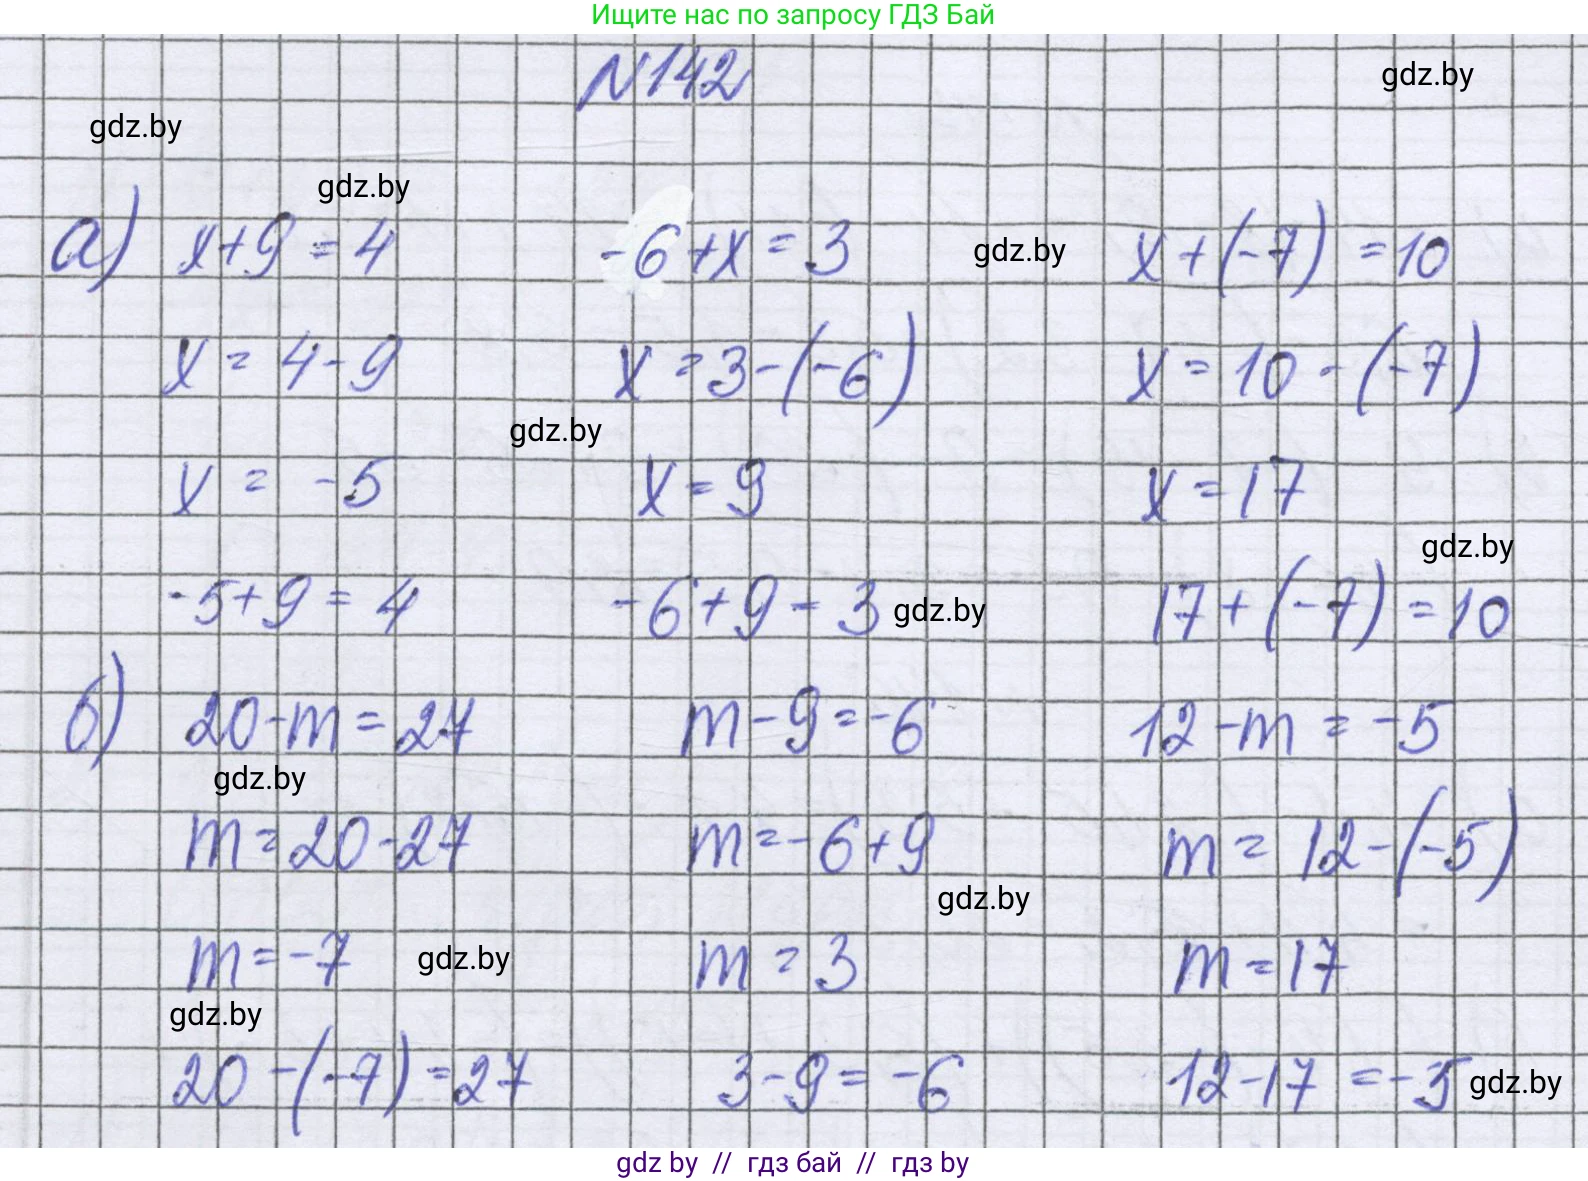 Ищите нас по запросу ГДЗ Бай
N142
gdz.by
gdz.by
gdz.by
а) x+9=4 -6+x=3 gdz.by x+(-7)=10
x=4-9 x=3-(-6) x=10-(-7)
gdz.by
x=-5 x=9 x=17
gdz.by
-5+9=4 -6+9=3 gdz.by 17+(-7)=10
б) 20-m=27 m-9=-6 12-m=-5
gdz.by
m=20-27 m=-6+9 m=12-(-5)
gdz.by
m=-7 gdz.by m=3 m=17
gdz.by
20-(-7)=27 3-9=-6 12-17=-5 gdz.by
gdz by // гдз бай // гдз by